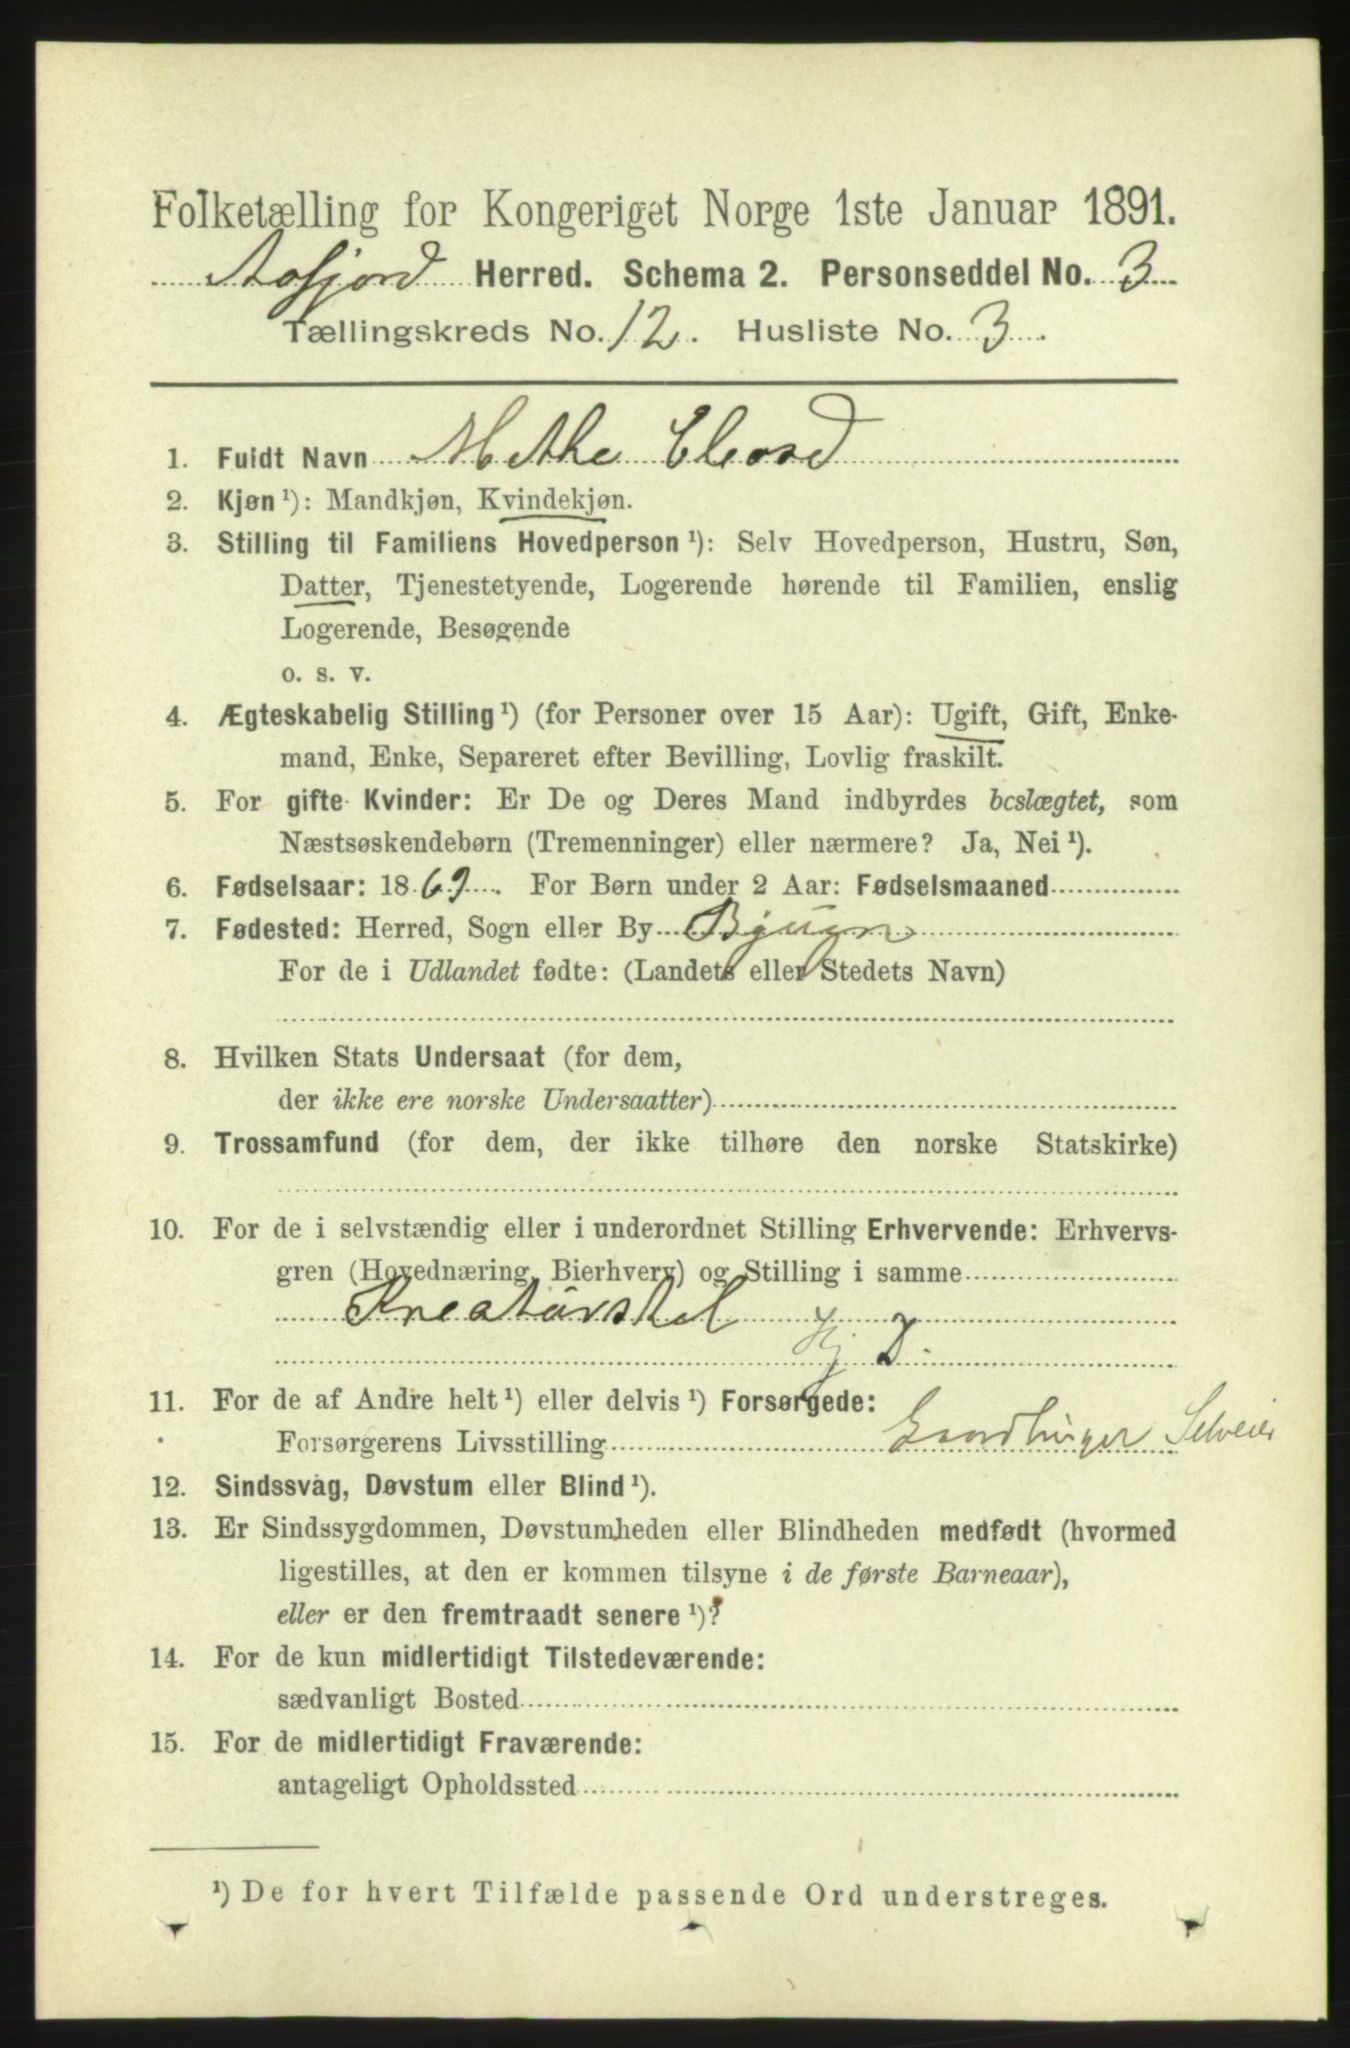 Folketælling for Kongeriget Norge 1ste Januar 1891.
Aafjord Herred. Schema 2. Personseddel No. 3
Tællingskreds No. 12. Husliste No. 3.
1. Fuldt Navn Methe
2. Kjøn ¹): Mandkjøn, Kvindekjøn.
3. Stilling til Familiens Hovedperson ¹): Selv Hovedperson, Hustru, Søn,
Datter, Tjenestetyende, Logerende hørende til Familien, enslig
Logerende, Besøgende
o. s. v.
4. Ægteskabelig Stilling ¹) (for Personer over 15 Aar): Ugift, Gift, Enke-
mand, Enke, Separeret efter Bevilling, Lovlig fraskilt.
5. For gifte Kvinder: Er De og Deres Mand indbyrdes beslægtet, som
Næstsøskendebørn (Tremenninger) eller nærmere? Ja, Nei ¹).
6. Fødselsaar: 1869. For Børn under 2 Aar: Fødselsmaaned
7. Fødested: Herred, Sogn eller By Bjugn
For de i Udlandet fødte: (Landets eller Stedets Navn)
8. Hvilken Stats Undersaat (for dem,
der ikke ere norske Undersaatter)
9. Trossamfund (for dem, der ikke tilhøre den norske Statskirke)
10. For de i selvstændig eller i underordnet Stilling Erhvervende: Erhvervs-
gren (Hovednæring, Bierhverv) og Stilling i samme
Kreaturstel
Hj D.
11. For de af Andre helt ¹) eller delvis ¹) Forsørgede:
Forsørgerens Livsstilling Gaardbruger Selveier
12. Sindssvag, Døvstum eller Blind ¹).
13. Er Sindssygdommen, Døvstumheden eller Blindheden medfødt (hvormed
ligestilles, at den er kommen tilsyne i de første Barneaar),
eller er den fremtraadt senere ¹)?
14. For de kun midlertidigt Tilstedeværende:
sædvanligt Bosted
15. For de midlertidigt Fraværende:
antageligt Opholdssted
¹) De for hvert Tilfælde passende Ord understreges.